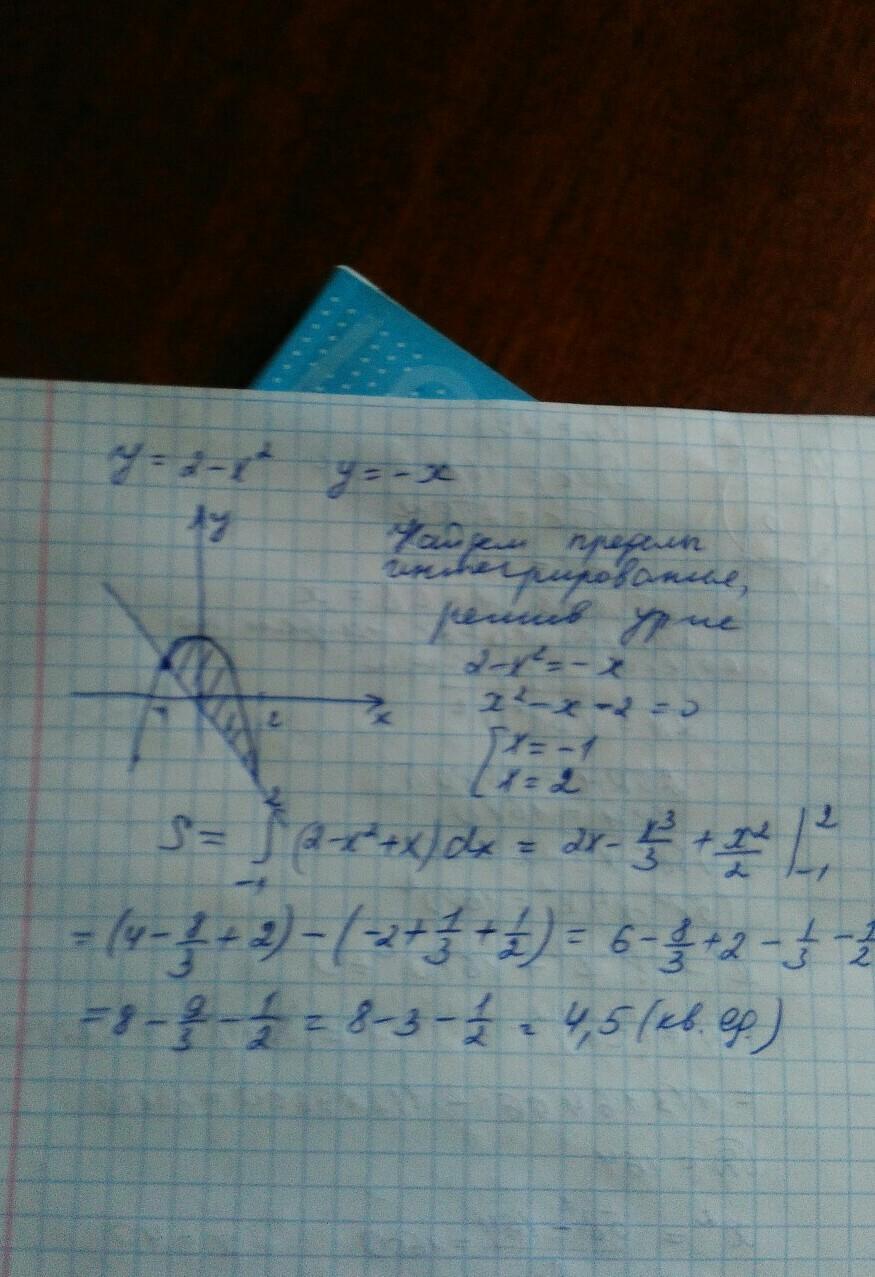 y = 2 - x² y = -x
y
Найдем пределы
интегрирование,
решив ур-ие
2 - x² = -x
x² - x - 2 = 0
x
2
[x = -1
x = 2
S = ∫₋₁² (2 - x² + x) dx = 2x - x³/3 + x²/2 |₋₁²
= (4 - 8/3 + 2) - (-2 + 1/3 + 1/2) = 6 - 8/3 + 2 - 1/3 - 1/2
= 8 - 9/3 - 1/2 = 8 - 3 - 1/2 = 4,5 (кв. ед.)